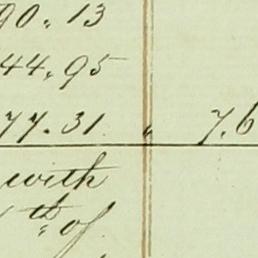 90. 13
44. 95
77. 31. " 7.6
with
th of